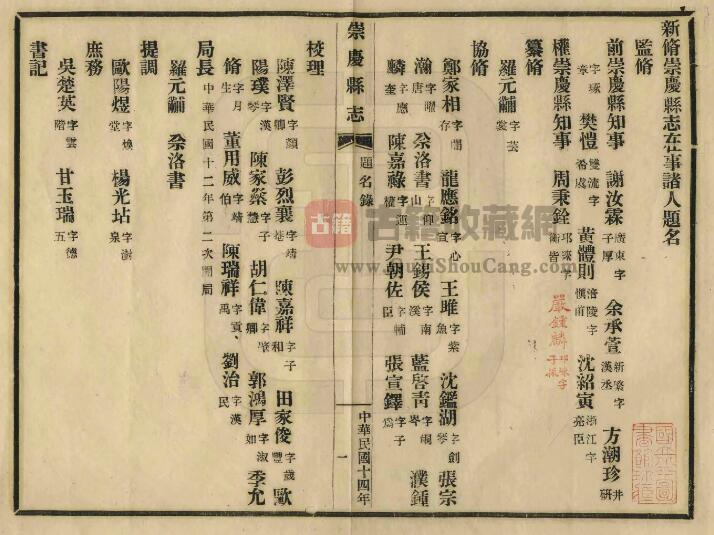 新脩崇慶縣志在事諸人題名
監脩
前崇慶縣知事 謝汝霖 廣東字子厚 余承萱 新繁字漢丞 方潮珍 井研
字琢章 樊愷 雙流字 黃體則 涪陵字慎前 沈紹寅 浙江字亮臣
權崇慶縣知事 周秉銓 邛崍字 嚴鍾麟
纂脩
羅元黼 字芸裳
協脩
鄭家相 字閣存 龍應銘 字心宣 王雎 字紫魚 沈鑑湖 字劍琴 張宗
瀚 字曙唐 尒洛書 字仰山 王錫侯 字南溪 藍啓青 字峒岑 濮鍾
麟 字應奎 陳嘉祿 尹朝佐 字輔臣 張宣鐸 字子爲
校理
陳澤賢 字顯卿 彭烈襄 字靖 陳嘉祥 字子和 田家俊 字歲豐 歐
陽璞 字漢琴 陳家棻 字子慧 胡仁偉 郭鴻厚 字淑如 季允
脩 字月生 董用威 字靖伯 陳瑞祥 字貢禹 劉治 字漢民
局長 中華民國十二年第二次開局
羅元黼 尒洛書
提調
歐陽煜 字煥堂 楊光坫 字澍泉
庶務
吳楚英 字雲階 甘玉瑞 字德五
書記
崇慶縣志
題名錄
一
中華民國十四年
古籍 古籍收藏網
www.GujiShouCang.com